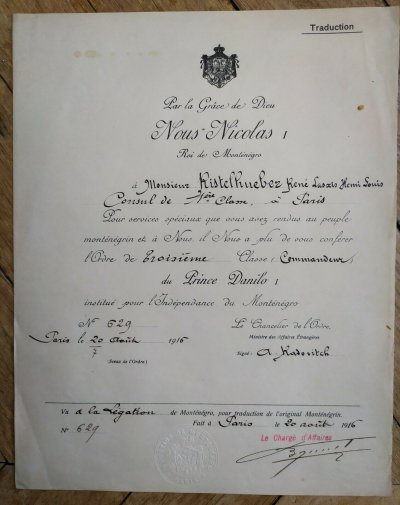 Traduction
Par la Grâce de Dieu
Nous Nicolas I
Roi de Monténégro
à Monsieur Ristelhueber René Henri Louis
Consul de 1ère Classe, à Paris
Pour services spéciaux que vous avez rendus au peuple
monténégrin et à Nous, il Nous a plu de vous conférer
l'Ordre de Troisième Classe (Commandeur)
du Prince Danilo I
institué pour l'Indépendance du Monténégro
N° 629
Le Chancelier de l'Ordre,
Paris le 20 août 1916
Ministre des Affaires Étrangères
(Sceau de l'Ordre)
Signé: A. Radovitch
Vu à la Légation de Monténégro, pour traduction de l'original Monténégrin.
N° 629
Fait à Paris le 20 août 1916
Le Chargé d'Affaires